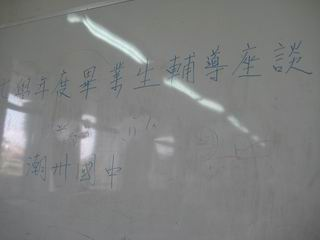 學年度畢業生輔導座談
潮州國中